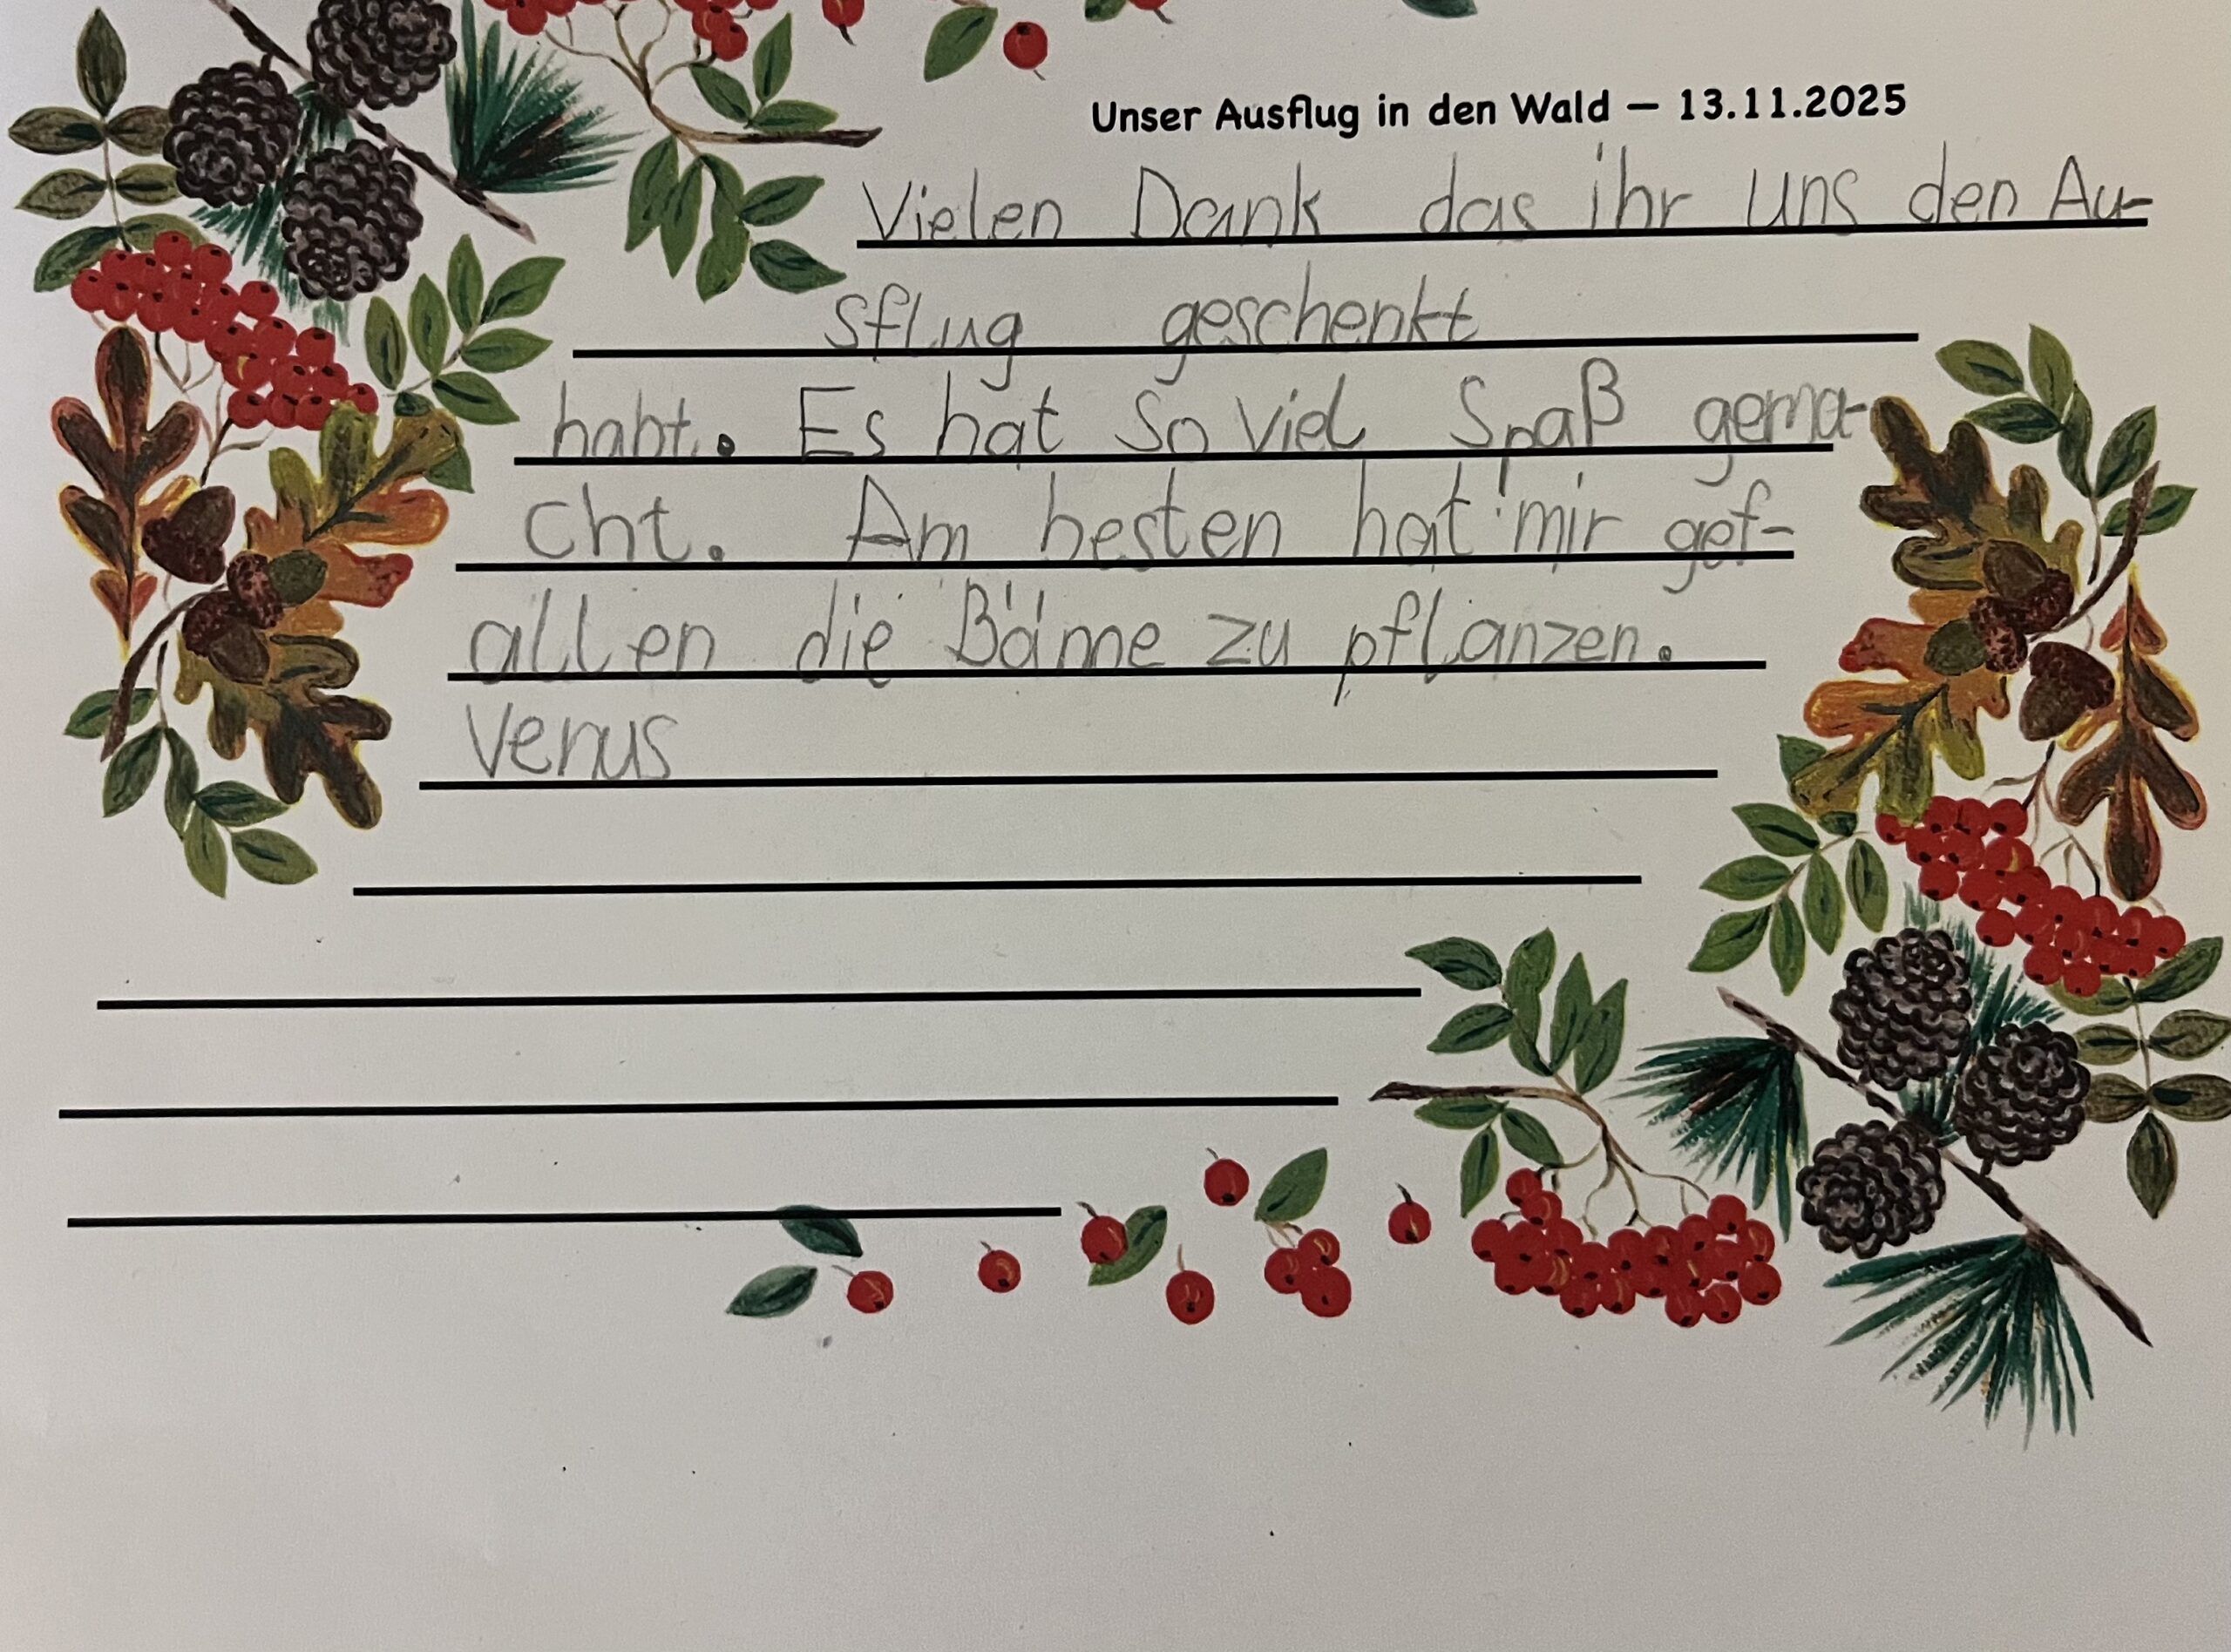 Unser Ausflug in den Wald – 13.11.2025
Vielen Dank das ihr uns den Au-
sflug geschenkt
habt. Es hat so viel Spaß gema-
cht. Am besten hat mir gef-
allen die Bäme zu pflanzen.
Venus